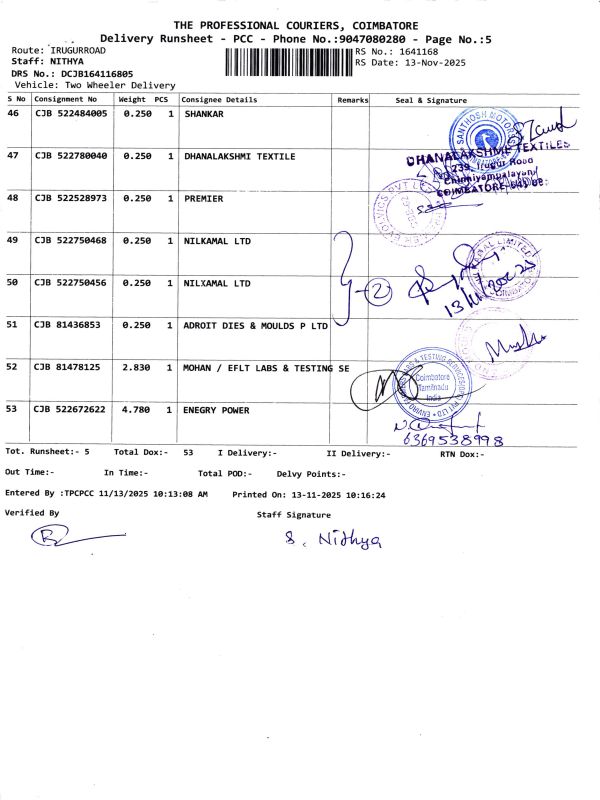 THE PROFESSIONAL COURIERS, COIMBATORE
Delivery Runsheet - PCC - Phone No.:9047080280 - Page No.:5
Route: IRUGURROAD RS No.: 1641168
Staff: NITHYA RS Date: 13-Nov-2025
DRS No.: DCJB164116805
Vehicle: Two Wheeler Delivery
S No Consignment No Weight PCS Consignee Details Remarks Seal & Signature
46 CJB 522484005 0.250 1 SHANKAR
SANTHOSH MOTORS
47 CJB 522780040 0.250 1 DHANALAKSHMI TEXTILE
DHANALAKSHMI TEXTILES
239, Irugur Road
Chinniyampalayam
COIMBATORE-641 06
48 CJB 522528973 0.250 1 PREMIER
49 CJB 522750468 0.250 1 NILKAMAL LTD
50 CJB 522750456 0.250 1 NILKAMAL LTD
2
51 CJB 81436853 0.250 1 ADROIT DIES & MOULDS P LTD
52 CJB 81478125 2.830 1 MOHAN / EFLT LABS & TESTING SE
Coimbatore
Tamilnadu
India
53 CJB 522672622 4.780 1 ENEGRY POWER
6369538998
Tot. Runsheet:- 5 Total Dox:- 53 I Delivery:- II Delivery:- RTN Dox:-
Out Time:- In Time:- Total POD:- Delvy Points:-
Entered By :TPCPCC 11/13/2025 10:13:08 AM Printed On: 13-11-2025 10:16:24
Verified By Staff Signature
S. Nithya